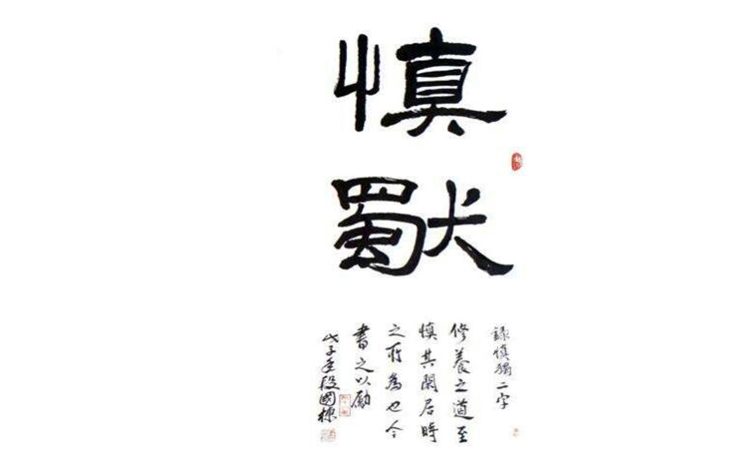 慎獨
録慎獨二字
修養之道至
慎其閑居時
之所為也今
書之以勵
戊子年段國